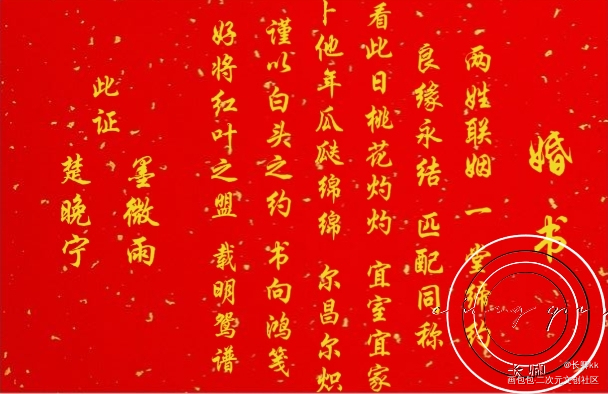 婚书
两姓联姻 一堂缔约
良缘永结 匹配同称
看此日桃花灼灼 宜室宜家
卜他年瓜瓞绵绵 尔昌尔炽
谨以白头之约 书向鸿笺
好将红叶之盟 载明鸳谱
此证
墨微雨
楚晚宁
长卿
@长卿kk
画包包·二次元文创社区